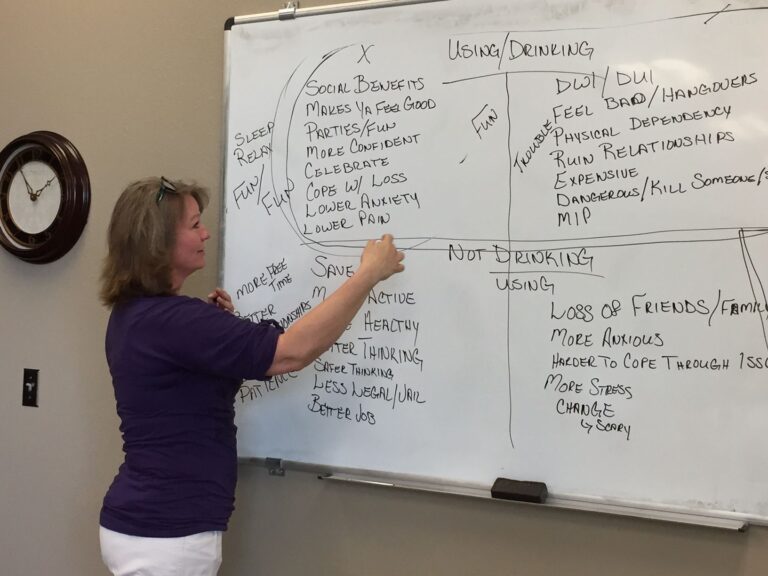 X
USING/DRINKING
SOCIAL BENEFITS
MAKES YA FEEL GOOD
PARTIES/FUN
MORE CONFIDENT
CELEBRATE
COPE W/ LOSS
LOWER ANXIETY
LOWER PAIN
SLEEP
RELAX
FUN/
FUN
FUN
TROUBLE
DWI/DUI
FEEL BAD/HANGOVERS
PHYSICAL DEPENDENCY
RUIN RELATIONSHIPS
EXPENSIVE
DANGEROUS/KILL SOMEONE/
MIP
NOT DRINKING
USING
SAVE
ACTIVE
HEALTHY
THINKING
SAFER THINKING
LESS LEGAL/JAIL
BETTER JOB
MORE FREE
TIME
PATIENCE
LOSS OF FRIENDS/FAMILY
MORE ANXIOUS
HARDER TO COPE THROUGH
MORE STRESS
CHANGE
↳ SCARY